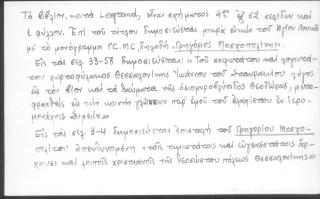 Τὸ βιβλίον, κατὰ Legrand, εἶναι σχήματος 4ου ἐξ 62 σελίδων καὶ
1 φύλλου. Ἐπὶ τοῦ τίτλου δημοσιεύεται μικρὰ εἰκὼν τοῦ Ἁγίου Λουκᾶ
μὲ τὸ μονόγραμμα ΓΣ.ΜΣ, δηλαδὴ «Γρηγόριος Μοσχοπολίτης».
Εἰς τὰς σελ. 33-58 δημοσιεύεται: «Τοῦ σοφωτάτου καὶ λογιωτά-
του χαρτοφύλακος Θεσσαλονίκης Ἰωάννου τοῦ Σταυρακίου λόγος
εἰς τὸν βίον καὶ τὰ θαύματα τῆς ὁσιομυροβλύτιδος Θεοδώρας, μετα-
φρασθεὶς εἰς τὴν κοινὴν γλῶσσαν παρ' ἐμοῦ τοῦ ἐλαχίστου ἐν ἱερο-
μονάχοις
Εἰς τὰς σελ. 3-4 δημοσιεύεται ἐπιστολὴ τοῦ Γρηγορίου Μοσχο-
πολίτου ἀπευθυνομένη «τοῖς τιμιωτάτοις καὶ εὐγενεστάτοις ἄρ-
χουσι καὶ λοιποῖς χριστιανοῖς τῆς θεοσώστου πόλεως Θεσσαλονίκης.»